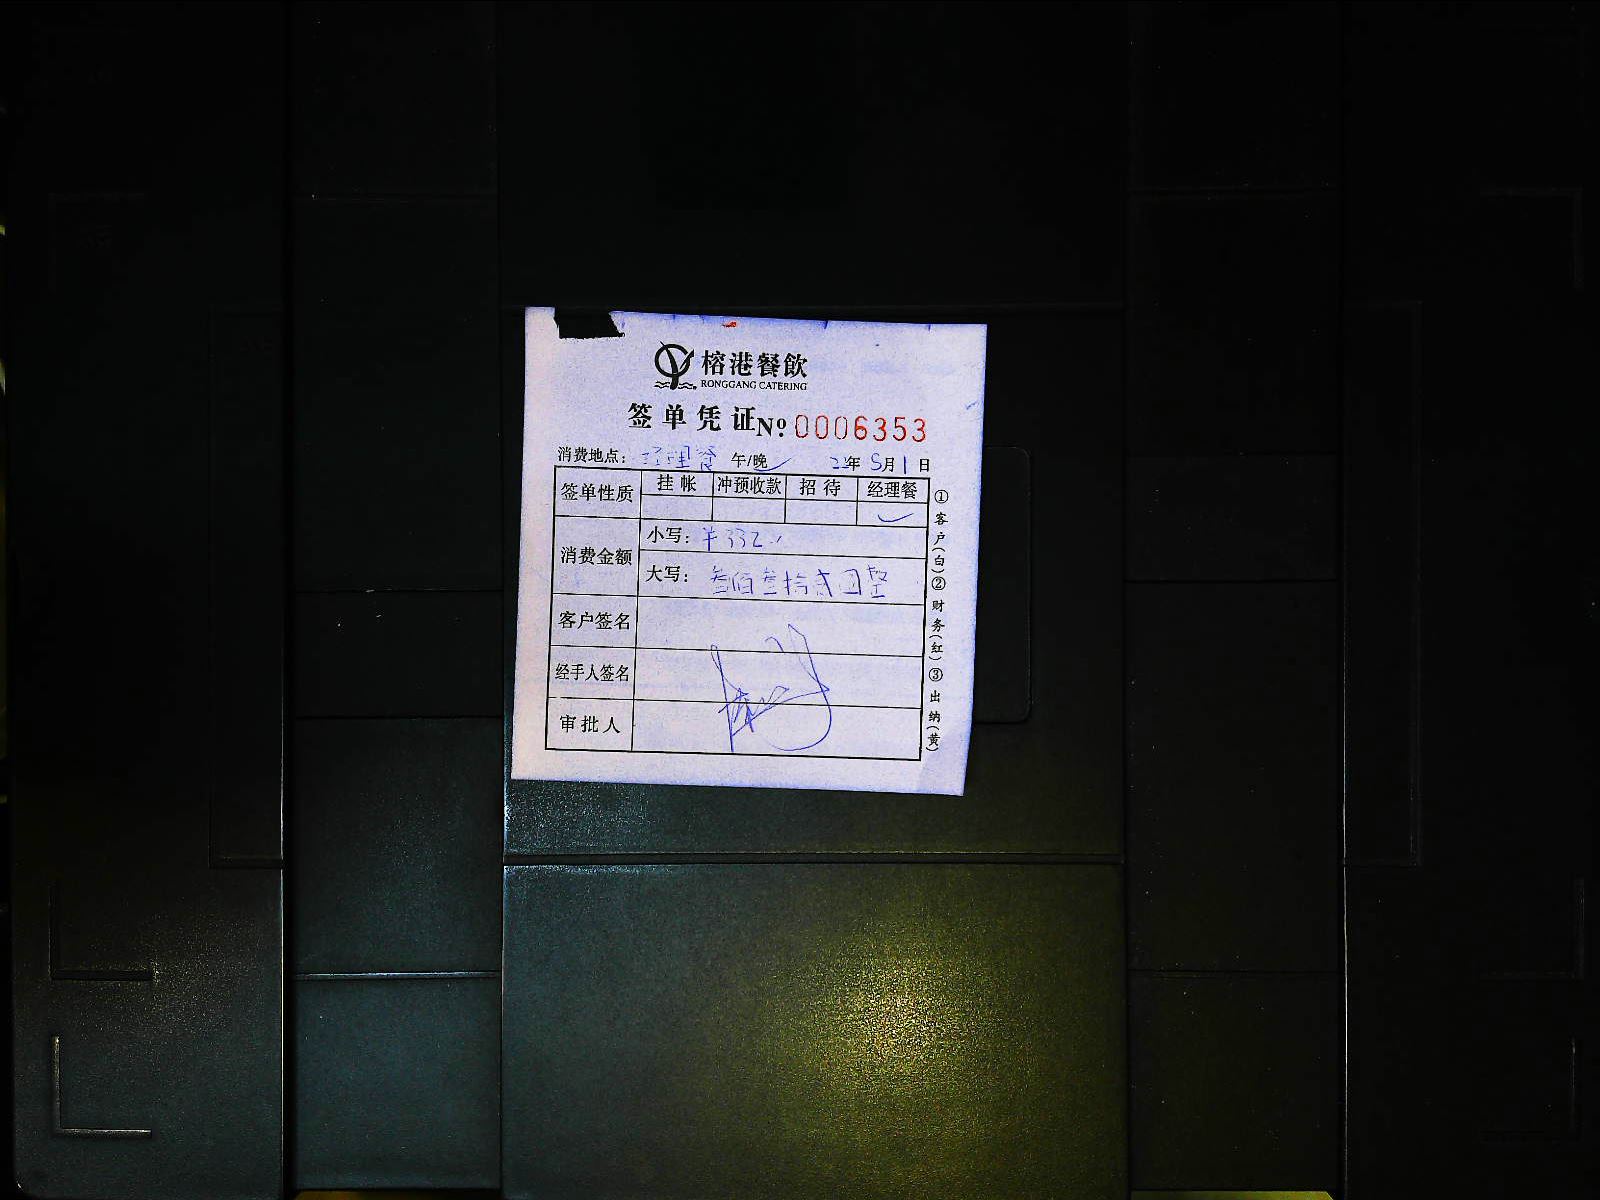 榕港餐飲
RONGGANG CATERING
签单凭证 Nº 0006353
消费地点: 经理餐 午/晚 22年5月1日
签单性质 挂帐 冲预收款 招待 经理餐
消费金额 小写: ¥332.
大写: 叁佰叁拾贰圆整
客户签名
经手人签名
审批人
①客户(白)②财务(红)③出纳(黄)